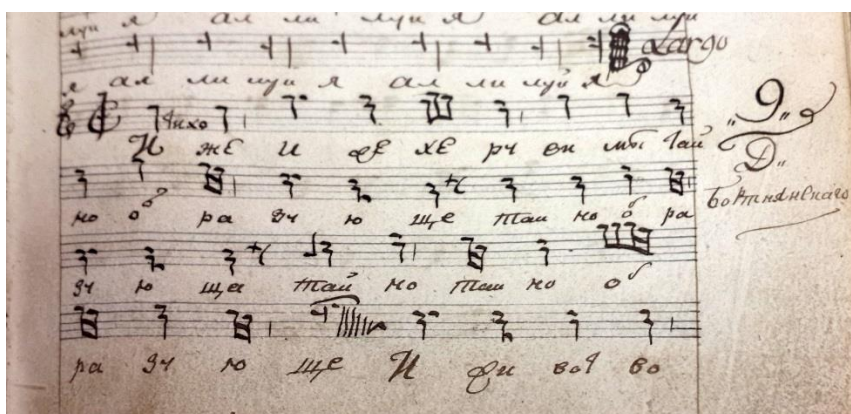 луи я ал ли луи я ал ли луи
Largo
я ал ли луи я ал ли луй я
Тихо
И же и хе ру ви мы тай
„9„
D„
Бортнянскаго
но об ра зу ю ще тай но об ра
зу ю ще тай но тай но об
ра зу ю ще И жи вот во